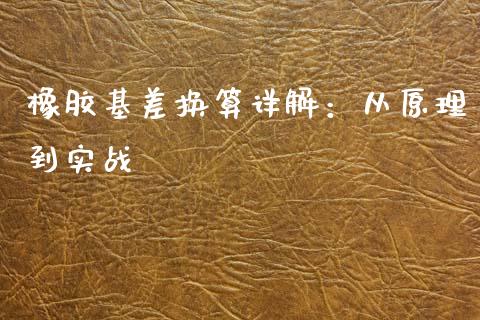 橡胶基差换算详解：从原理
到实战